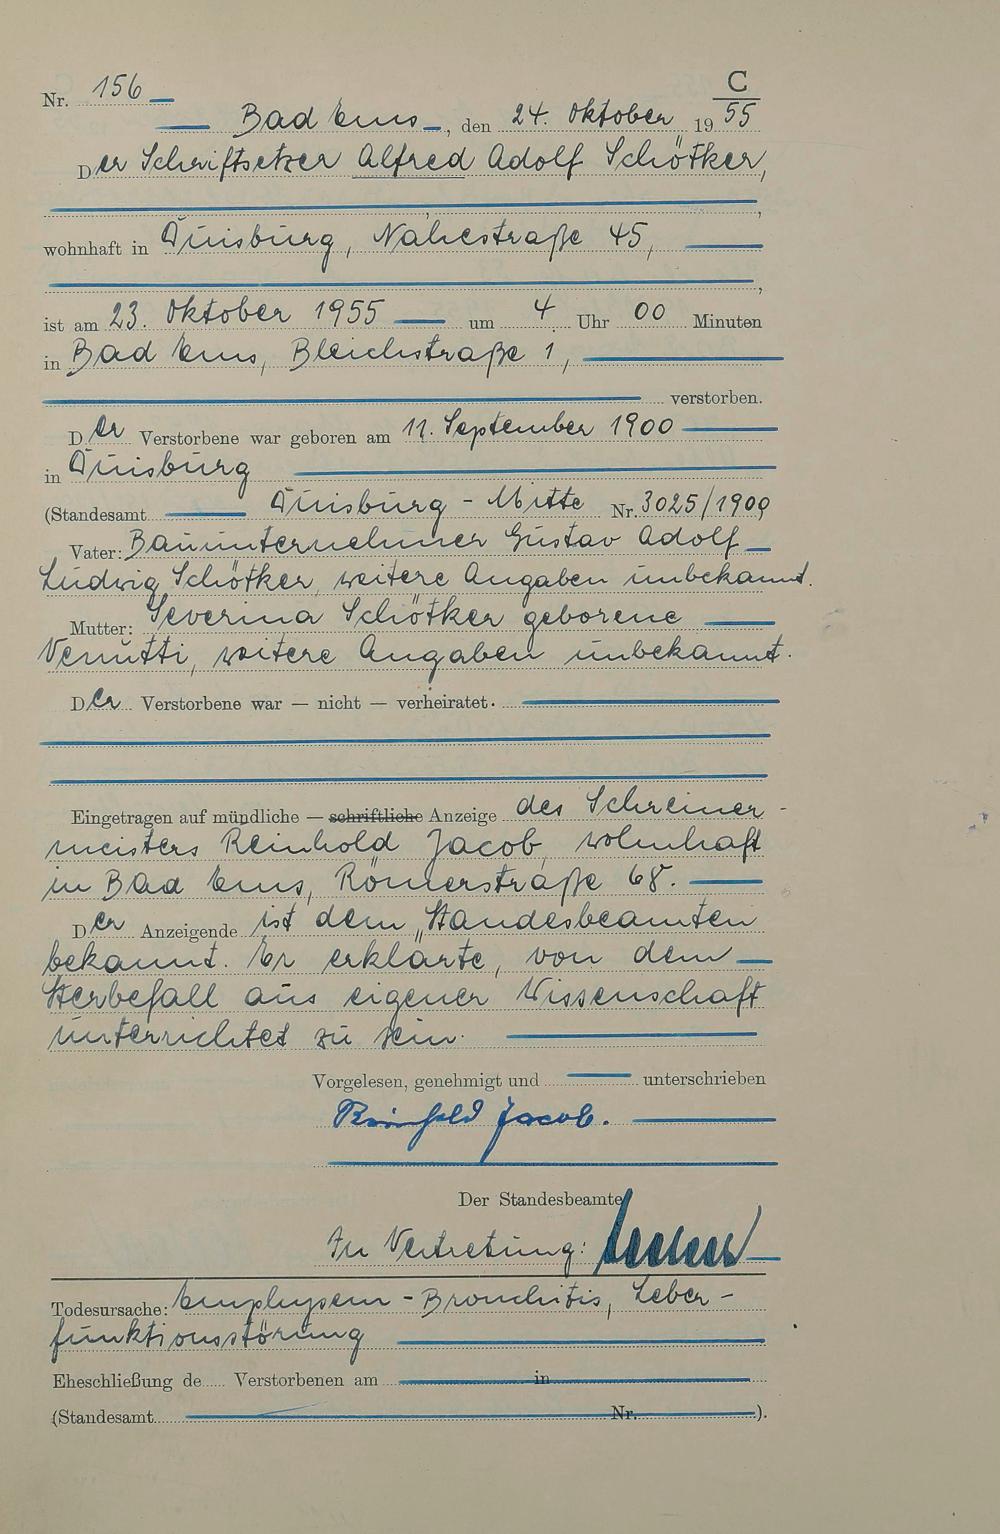 C
Nr. 156
Bad Ems, den 24. Oktober 1955
Der Schriftsetzer Alfred Adolf Schötker,
wohnhaft in Duisburg, Nahestraße 45,
ist am 23. Oktober 1955 um 4 Uhr 00 Minuten
in Bad Ems, Bleichstraße 1,
verstorben.
Der Verstorbene war geboren am 11. September 1900
in Duisburg
(Standesamt Duisburg - Mitte Nr. 3025/1900
Vater: Bauunternehmer Gustav Adolf
Ludwig Schötker, weitere Angaben unbekannt.
Mutter: Severina Schötker geborene
Venutti, weitere Angaben unbekannt.
Der Verstorbene war — nicht — verheiratet.
Eingetragen auf mündliche — schriftliche Anzeige des Schreiner-
meisters Reinhold Jacob, wohnhaft
in Bad Ems, Römerstraße 68.
Der Anzeigende ist dem Standesbeamten
bekannt. Er erklärte, von dem
Sterbefall aus eigener Wissenschaft
unterrichtet zu sein.
Vorgelesen, genehmigt und unterschrieben
Reinhold Jacob.
Der Standesbeamte
In Vertretung:
Todesursache: Emphysem - Bronchitis, Leber-
funktionsstörung
Eheschließung de Verstorbenen am in
(Standesamt Nr. ).